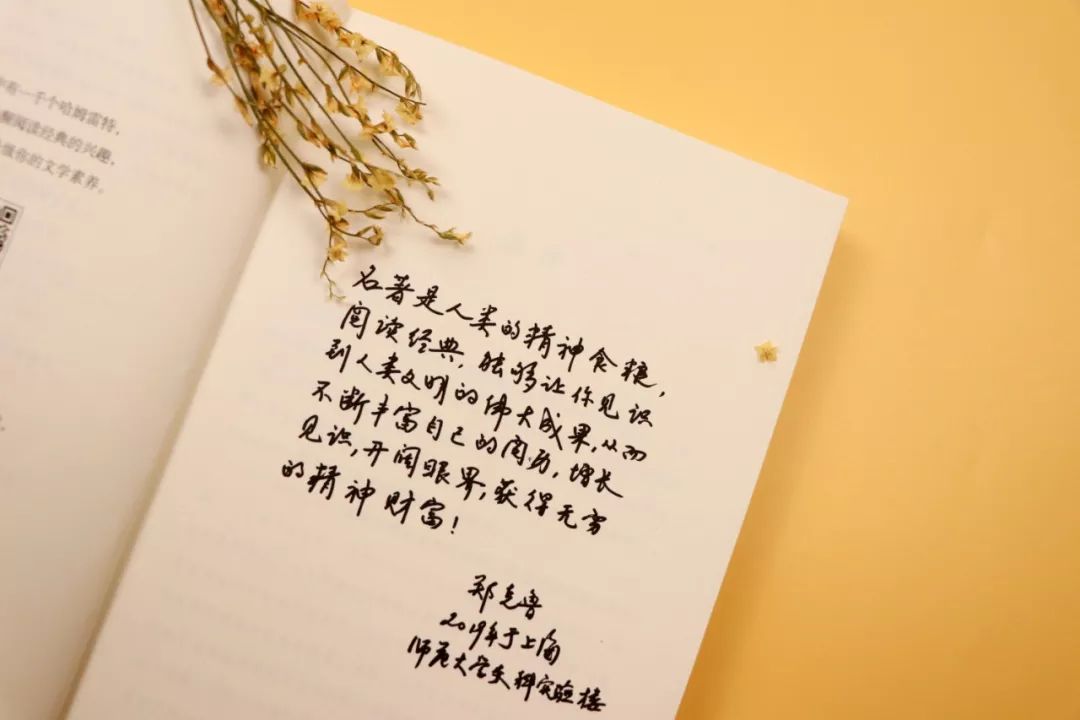 有一千个哈姆雷特，
阅读经典的兴趣，
你的文学素养。
名著是人类的精神食粮，
阅读经典，能够让你见识
到人类文明的伟大成果，从而
不断丰富自己的阅历，增长
见识，开阔眼界，获得无穷
的精神财富！
郑克鲁
2019年于上海
师范大学文科实验楼